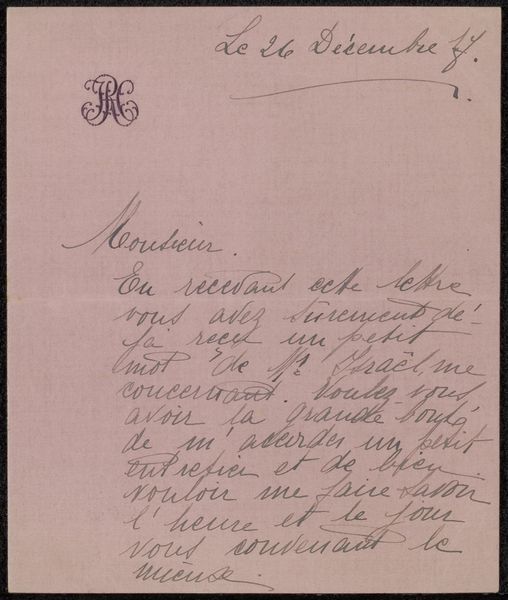 Le 26 Décembre
Monsieur.
En recevant cette lettre
vous avez sûrement dé-
ja reçu un petit
mot de Mr Israël, me
concernant. Voulez-vous
avoir la grande bonté
de m'accorder un petit
entretien et de bien
vouloir me faire savoir
l'heure et le jour
vous convenant le
mieux.